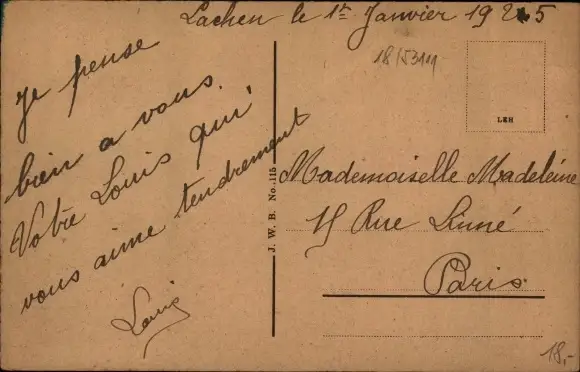 Lachen le 1er Janvier 1925
18/53111
Je pense
bien a vous.
Votre Louis qui
vous aime tendrement
Louis
J. W. B. No. 115
LEH
Mademoiselle Madeleine
15 Rue Linné
Paris
18,-